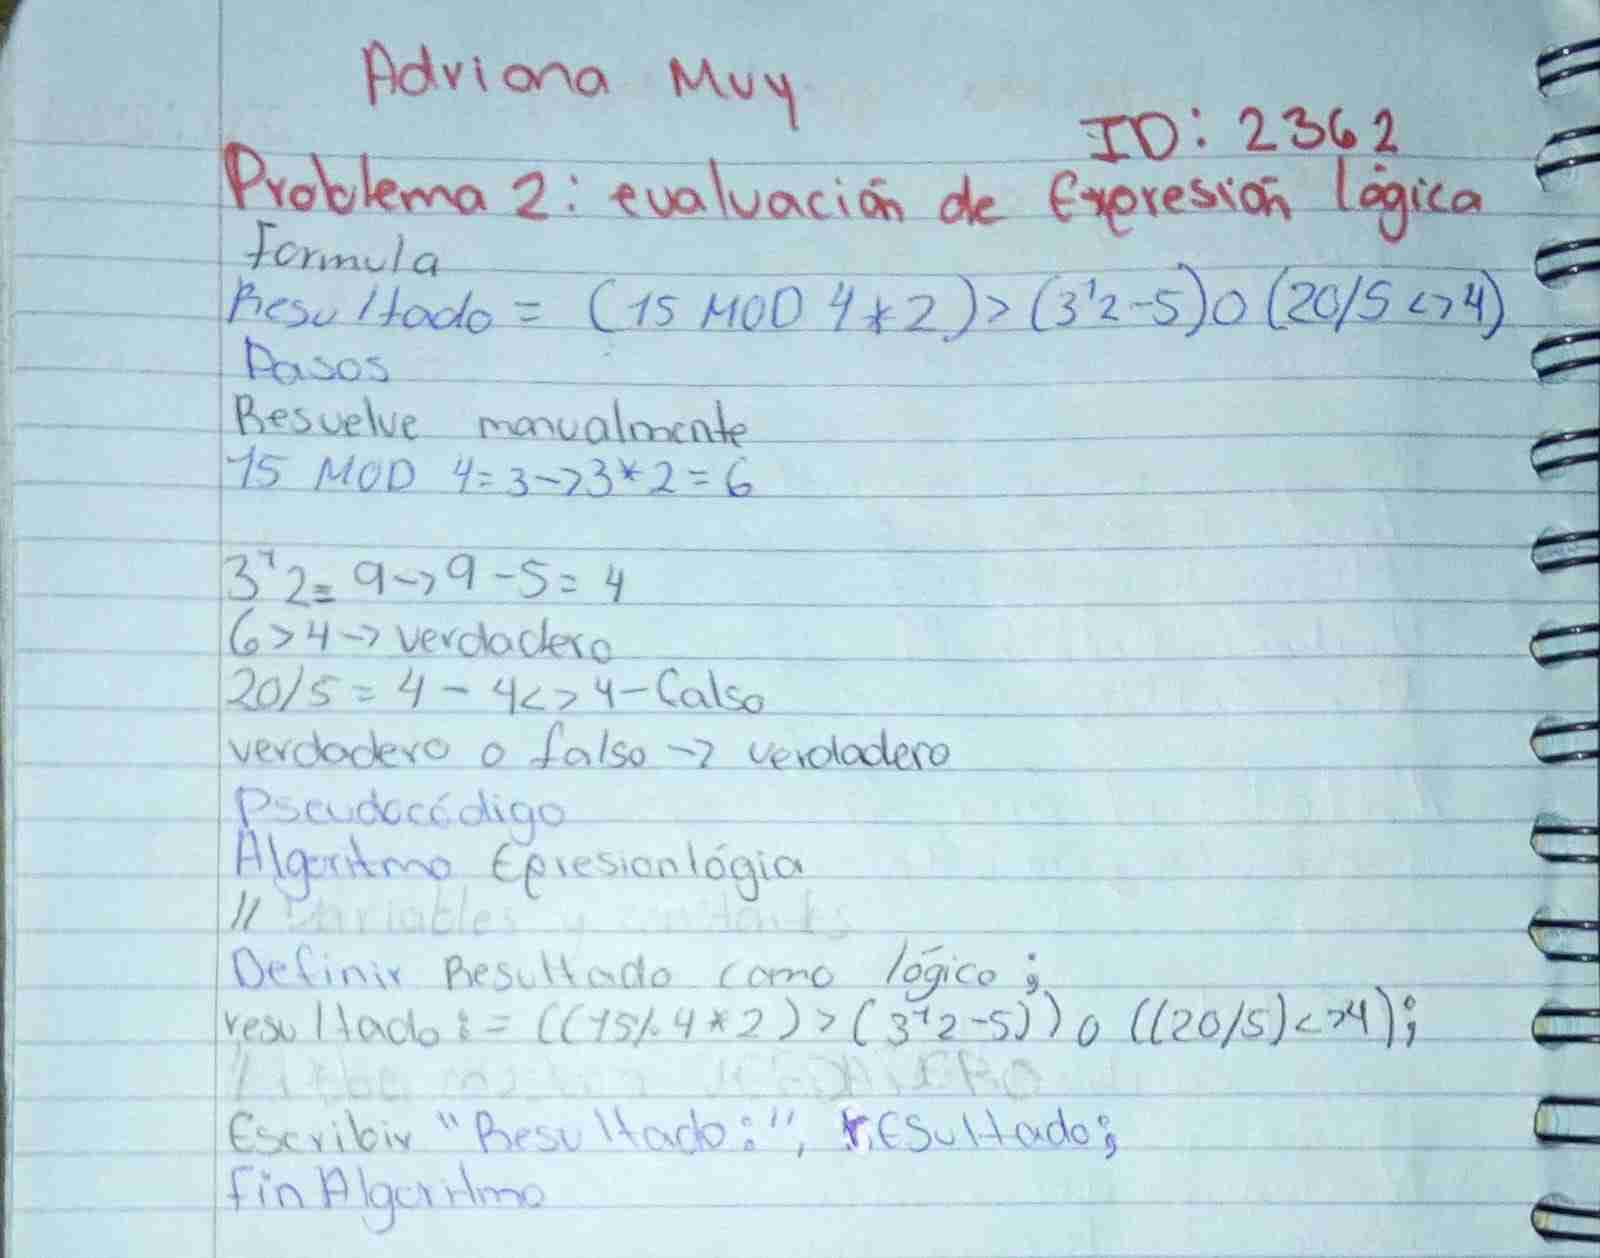 Adriana Muy
ID: 2362
Problema 2: evaluación de Expresión lógica
Formula
Resultado = (15 MOD 4 * 2) > (3^2-5) O (20/5 <> 4)
Pasos
Resuelve manualmente
15 MOD 4 = 3 -> 3*2 = 6
3^2 = 9 -> 9 - 5 = 4
6 > 4 -> verdadero
20/5 = 4 - 4 <> 4 - falso
verdadero o falso -> verdadero
Pseudocódigo
Algoritmo Epresionlógia
// Variables y constantes
Definir Resultado como lógico;
resultado := ((15 % 4 * 2) > (3^2-5)) o ((20/5) <> 4);
Escribir "Resultado:", rESultado;
fin Algoritmo